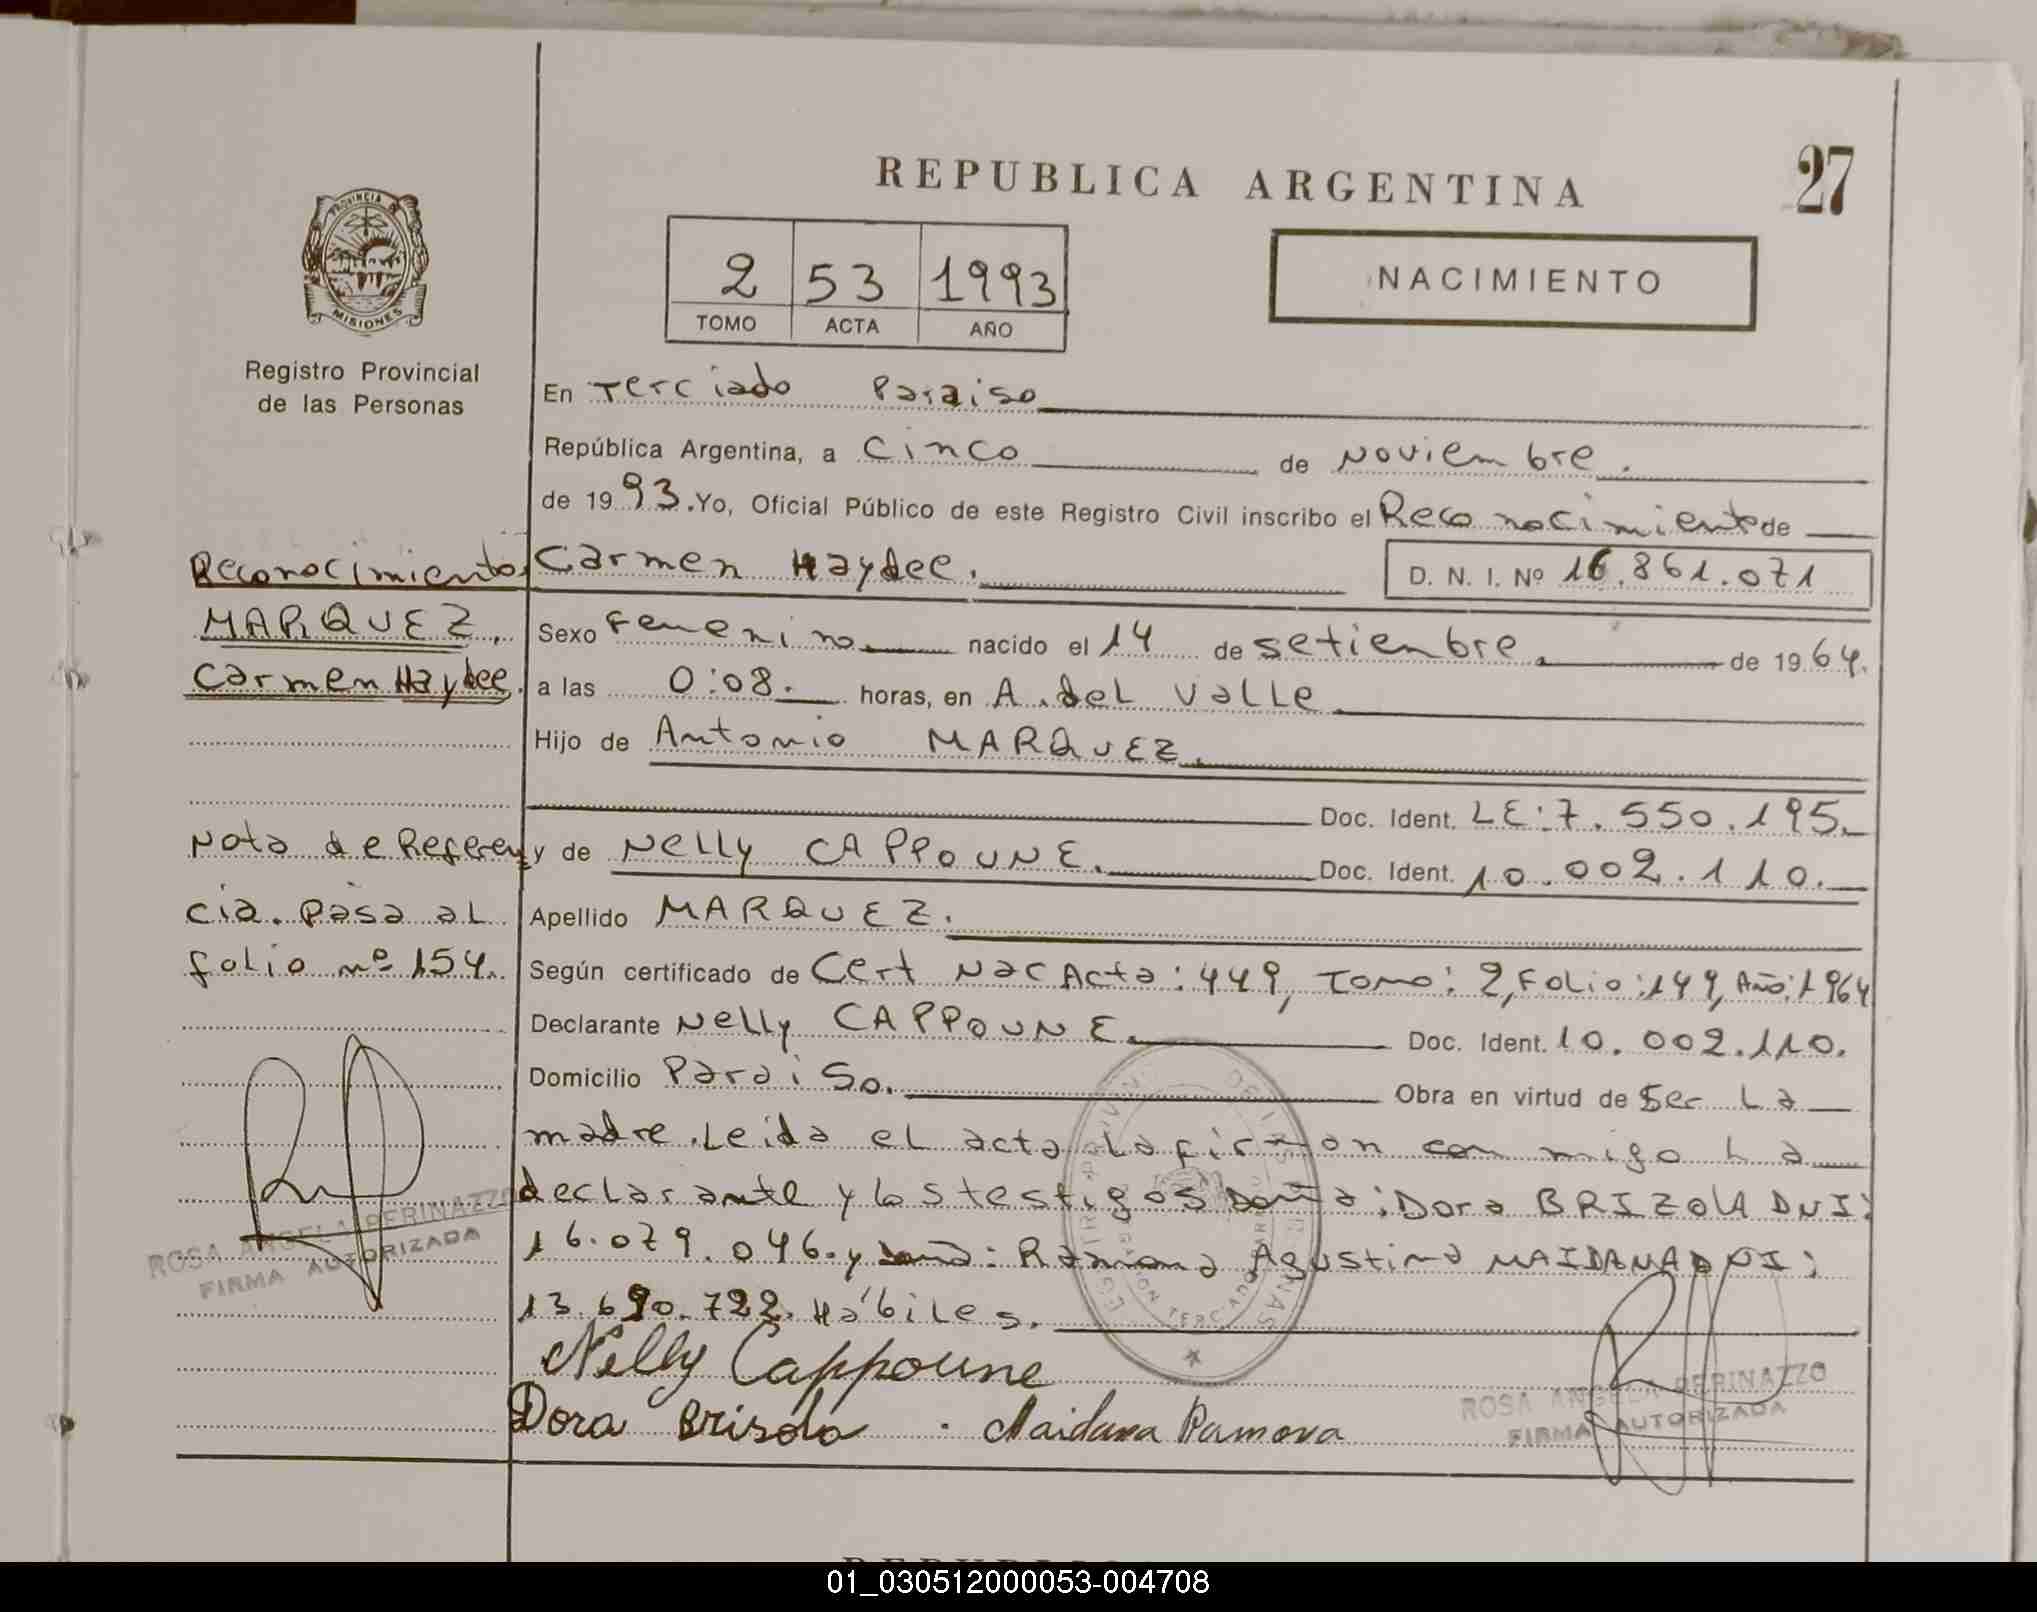 REPUBLICA ARGENTINA
27
PROVINCIA DE
MISIONES
Registro Provincial
de las Personas
2 53 1993
TOMO ACTA AÑO
NACIMIENTO
En Terciado Paraiso
República Argentina, a Cinco de Noviembre.
de 19 93. Yo, Oficial Público de este Registro Civil inscribo el Reconocimiento de
Carmen Haydee. D. N. I. Nº 16.861.071
Sexo Femenino nacido el 14 de setiembre. de 19 64.
a las 0:08. horas, en A. del Valle
Hijo de Antonio MARQUEZ.
Doc. Ident. LE: 7.550.195.
y de Nelly CAPPOUNE. Doc. Ident. 10.002.110.
Apellido MARQUEZ.
Según certificado de Cert Nac Acta: 449, Tomo: 2, Folio: 149, Año: 1964
Declarante Nelly CAPPOUNE. Doc. Ident. 10.002.110.
Domicilio Paraiso. Obra en virtud de Ser La
madre. Leida el acta la firman con migo La
declarante y los testigos Doña: Dora BRIZOLA DNI:
16.079.046. y Doña: Ramona Agustina MAIDANA DNI:
13.690.722. Hábiles.
Nelly Cappoune
Dora Brisola. Maidana Ramona
ROSA ANGELA PERINAZZO
FIRMA AUTORIZADA
Reconocimiento.
MARQUEZ,
Carmen Haydee.
Nota de Referen
cia. Pasa al
folio nº 154.
ROSA ANGELA PERINAZZO
FIRMA AUTORIZADA
01_030512000053-004708